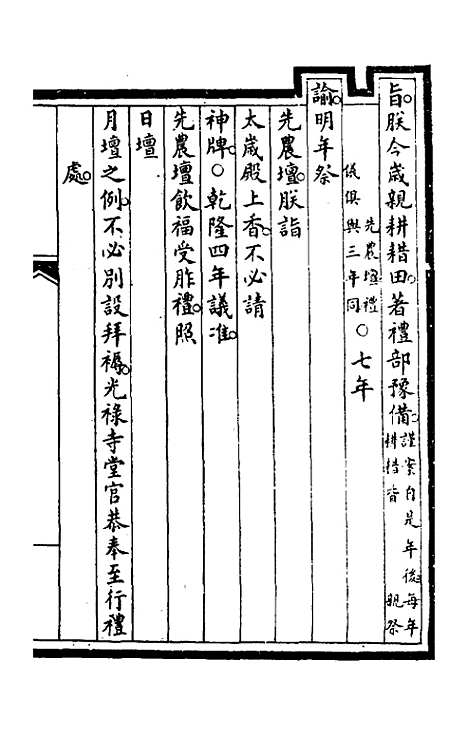 旨。朕今歲親耕耤田。著禮部豫備。謹案自是年後。每年親祭
耕耤皆
先農壇禮
儀俱與三年同〇七年
諭。明年祭
先農壇。朕詣
太歲殿上香。不必請
神牌。〇乾隆四年議准。
先農壇飲福受胙禮。照
日壇
月壇之例。不必別設拜褥。光祿寺堂官恭奉至行禮
處。